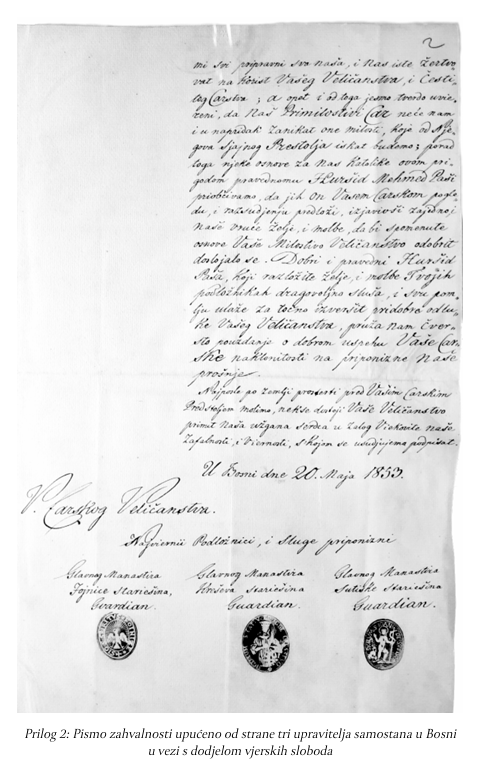 2
mi svi pripravni sva naša, i nas iste žertvo-
vat na korist Vašeg Veličanstva, i česti-
tog Carstva; a opet i od toga jesmo tverdo uvje-
ženi, da Naš Primilostivi Car neće nam
i u napridak zanikat one milosti, koje od Nje-
gova sjajnog Prestolja iskat budemo; porad
toga njeke osnove za nas Katolike ovom pri-
godom pravednomu Huršid Mehmed Paši
priobćivamo, da jih on Vašem Carskom pogle-
du, i razsudjenju predloži, izjavivši zajedno i
naše vruće želje, i molbe, da bi spomenute
osnove Vaše Milostivo Veličanstvo odobrit
dostojalo se. Dobri i pravedni Huršid
Paša, koji razložite želje, i molbe Tvojih
podložnikah dragovoljno sluša, i svu pom-
lju ulaže za točno izveršit pridobra odlu-
ke Vašeg Veličanstva, pruža nam čver-
sto pouzdanje o dobrom uspehu Vaše Car-
ske naklonitosti na priponizne naše
prošnje.
Najposle po zemlji prosterti pred Vašim Carskim
Pridstoljem molimo, nekse dostoji Vaše Veličanstvo
primit Naša užgana serdca u zalog Vikovite naše
Zafalnosti, i Viernosti, s kojom se usudjujemo podpisat.
U Bosni dne 20. Maja 1853.
V. Carskog Veličanstva.
Najviernii Podložnici, i Sluge priponizni
Glavnog Manastira
Fojnice Stariešina,
Guardian.
Glavnog Manastira
Kreševa Stariešina
Guardian.
Glavnog Manastira
Sutiske Stariešina
Guardian.
Prilog 2: Pismo zahvalnosti upućeno od strane tri upravitelja samostana u Bosni
u vezi s dodjelom vjerskih sloboda